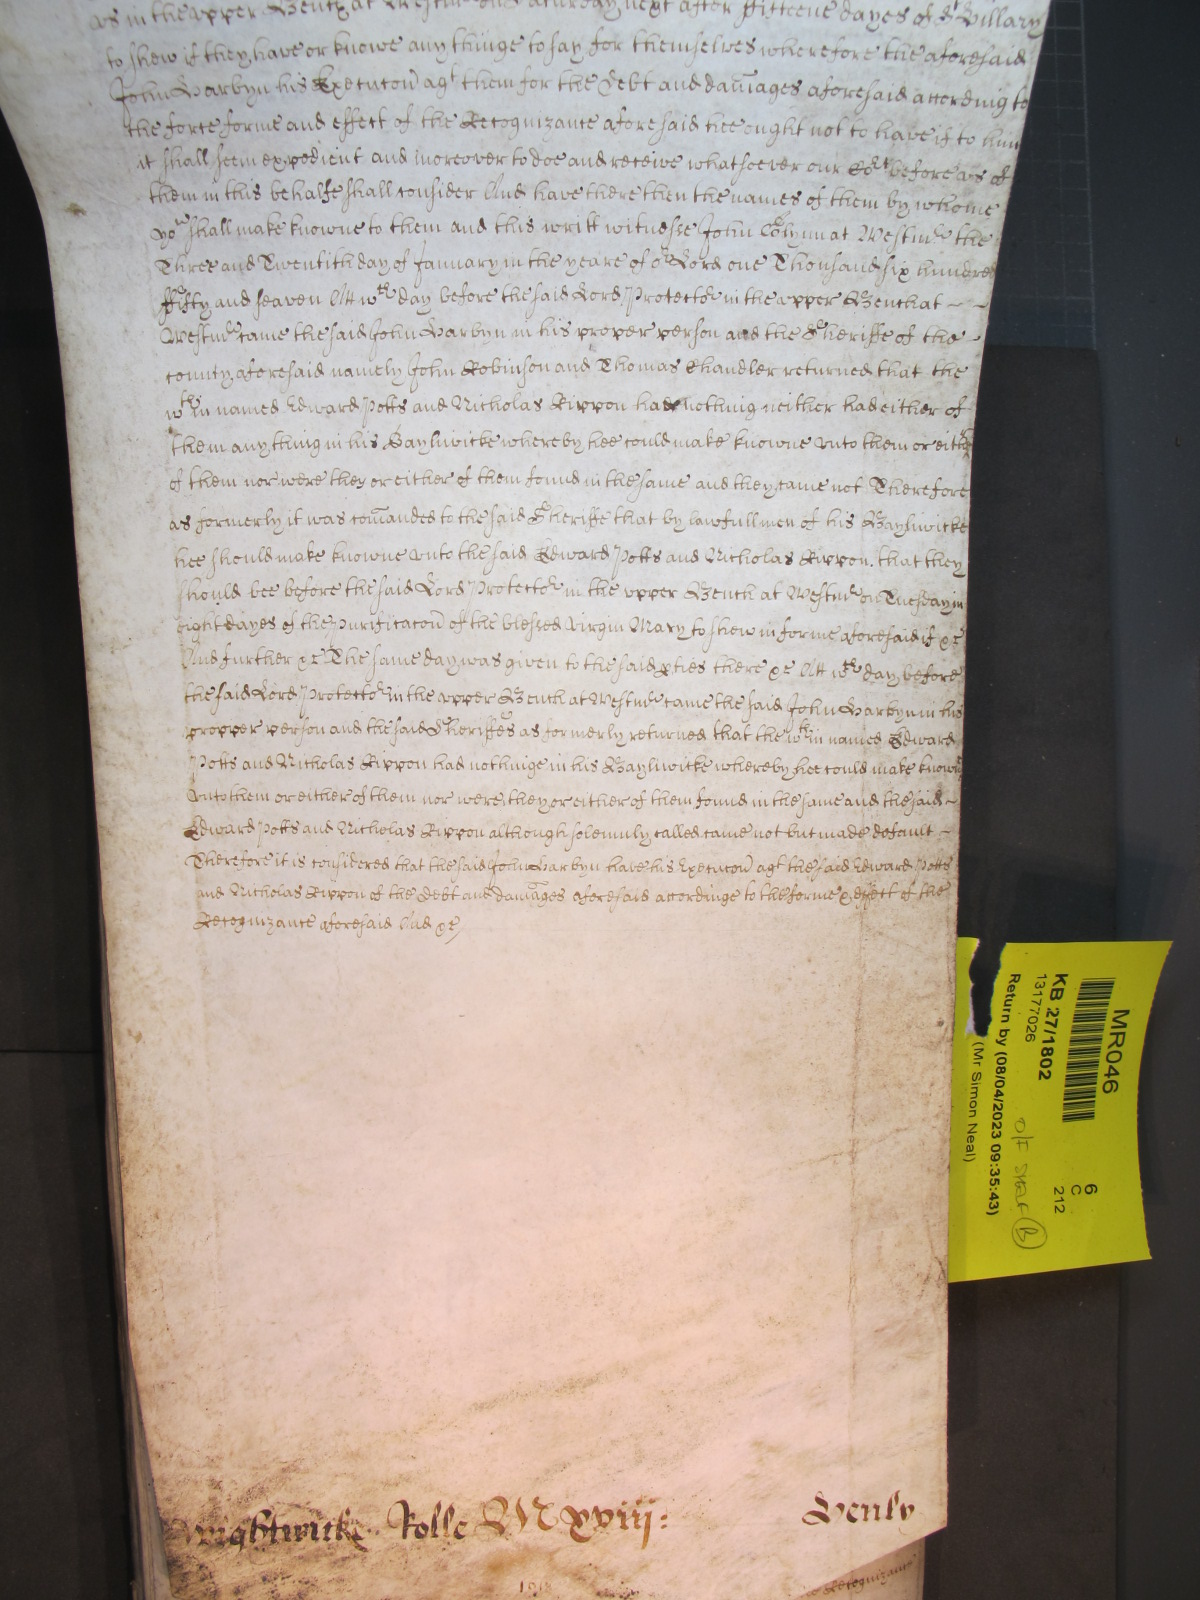 us in the upper Bench at Westmr on Saturday next after ffifteene dayes of St Hillary
to shew if they have or knowe any thinge to say for themselves wherefore the aforesaid
John Harbyn his Execucon agt them for the debt and damages aforesaid according to
the force forme and effect of the Recognizance aforesaid hee ought not to have if to him
it shall seem expedient and moreover to doe and receive whatsoever our Cort before us of
them in this behalfe shall consider And have there then the names of them by whome
yor shall make knowne to them and this writt witnesse John Glynn at Westmr the
Three and Twentith day of January in the yeare of or Lord one Thousand six hundred
ffifty and seaven Att wch day before the said Lord Protector in the upper Bench at ~ ~
Westmr came the said John Harbyn in his proper person and the Sheriffe of the ~
county aforesaid namely John Robinson and Thomas Chandler returned that the
wthin named Edward Potts and Nicholas Rippon had nothing neither had either of
them any thing in his Bayliwicke whereby hee could make knowne unto them or either
of them nor were they or either of them found in the same and they came not Therefore
as formerly it was comanded to the said Sheriffe that by lawfull men of his Bayliwicke
hee should make knowne unto the said Edward Potts and Nicholas Rippon. that they
should bee before the said Lord Protector in the upper Bench at Westmr on Tuesday in
eight dayes of the Purificacon of the blessed Virgin Mary to shew in forme aforesaid if &c
And further &c The same day was given to the said pties there &c Att wch day before
the said Lord Protector in the upper Bench at Westmr came the said John Harbyn in his
propper person and the said Sheriffes as formerly returned that the wthin named Edward
Potts and Nicholas Rippon had nothinge in his Bayliwicke whereby hee could make knowne
unto them or either of them nor were they or either of them found in the same and the said ~
Edward Potts and Nicholas Rippon although solemnly called came not but made default ~
Therefore it is considered that the said John Harbyn have his Execucon agt the said Edward Potts
and Nicholas Rippon of the debt and damages aforesaid accordinge to the forme & effect of the
Recognizance aforesaid And &c
Wightwicke Rolle MXXViij:
Henly
Recognizance
MR046
KB 27/1802
13177026
Return by (08/04/2023 09:35:43)
(Mr Simon Neal)
6
C
212
O/F SHELF B